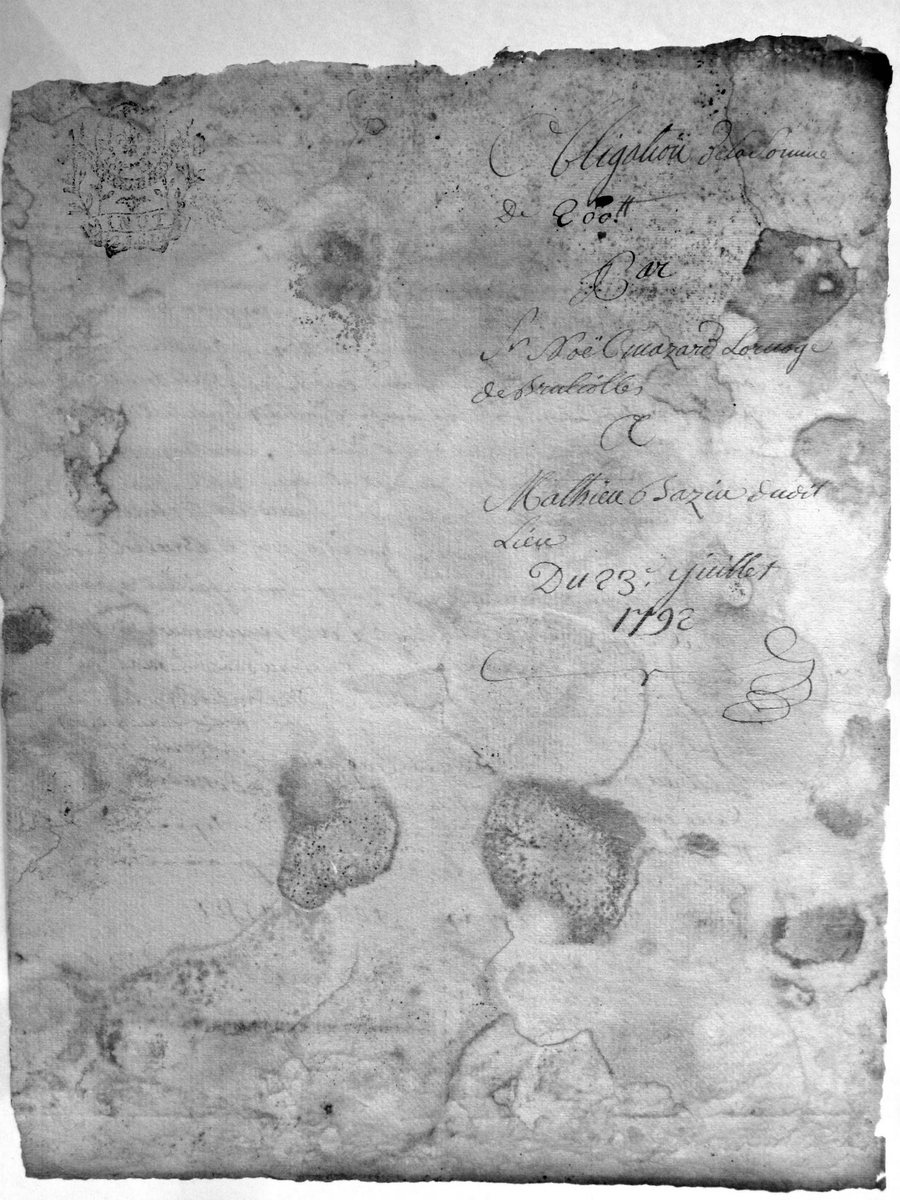 Obligation de la Somme
de 200.tt
Par
Sr Noë Cuazard
de
A
Mathieu Bazin dudit
Lieu
Du 23e. juillet
1792